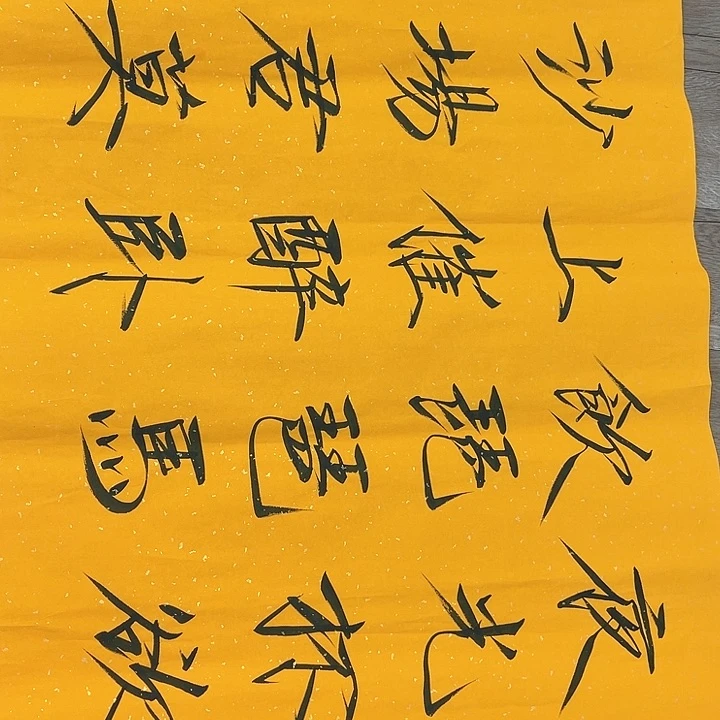 夜光杯欲
飲琵琶馬
上催醉臥
沙場君莫